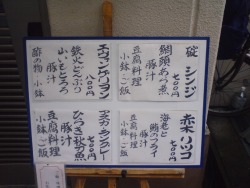 碇 シンジ
網頭あつ煮
七〇〇円
豚汁
豆腐料理
小鉢 ご飯
エヴァンゲリヨン
八〇〇円
鉄火どんぶり
豚汁
山いもとろろ
酢の物 小鉢
赤木リツコ
七〇〇円
海老と
鮪のフライ
豚汁
豆腐料理
小鉢 ご飯
アスカ・ラングレー
七〇〇円
ひらき秋刀魚
豚汁
豆腐料理
小鉢 ご飯